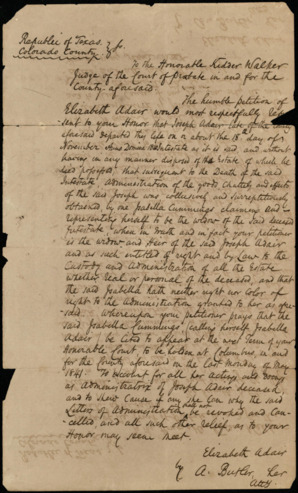 Republic of Texas
Colorado County
To the Honorable Kidder Walker
Judge of the Court of Probate in and for the
County aforesaid
The humble petition of
Elizabeth Adair would most respectfully
sent to your Honor that Joseph Adair late of the County
aforesaid departed this life on or about the 15th day of
November Anno Domini intestate as it is said and without
having in any manner disposed of the Estate of which he
died possessed, that subsequent to the Death of the said
Intestate administration of the goods, chattels, and effects
of the said Joseph was collusively and surreptitiously
obtained by one Isabella Cummings claiming and
representing herself to be the widow of the said deceased
Intestate when in truth and in fact your petitioner
is the widow and Heir of the said Joseph Adair
and as such entitled of right and by Law to the
Custody and Administration of all the Estate
whether real or personal of the deceased, and that
the said Isabella hath neither right nor color of
right to the administration granted to her as afore-
said. Whereupon your petitioner prays that the
said Isabella Cummings (calling herself Isabella
Adair) be cited to appear at the next Term of your
Honorable Court to be holden at Columbus, in and
for the County aforesaid on the last Monday of May
1841 To account for all her acting and doings
as Administratrix of Joseph Adair deceased
and to show Cause if any she can why the said
Letters of Administration be revoked and Can-
celled, and all such other relief as to your
Honor may seem meet.
Elizabeth Adair
by A. Butler, her
Atty.